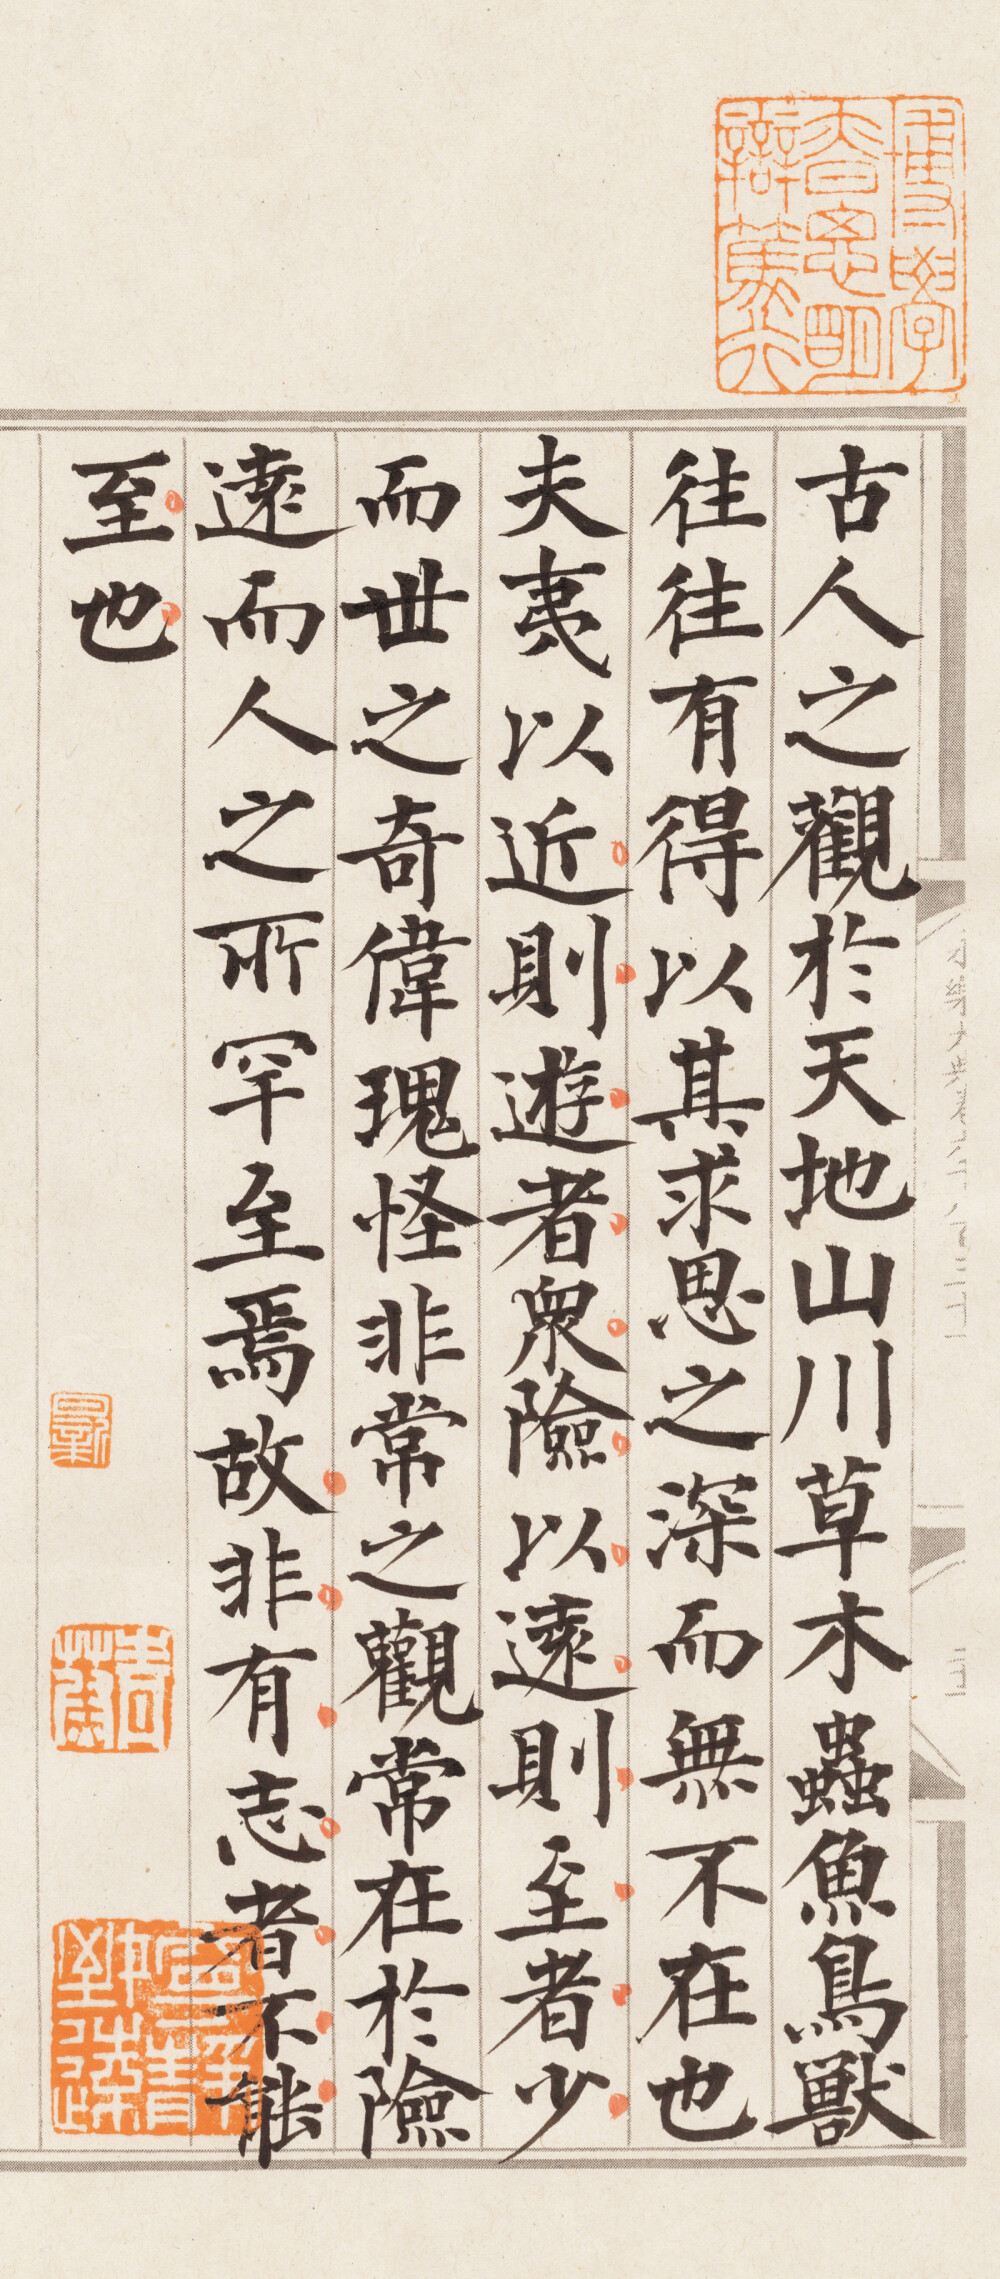 古人之觀於天地山川草木蟲魚鳥獸
往往有得以其求思之深而無不在也
夫夷以近則遊者衆險以遠則至者少
而世之奇偉瑰怪非常之觀常在於險
遠而人之所罕至焉故非有志者不能
至也